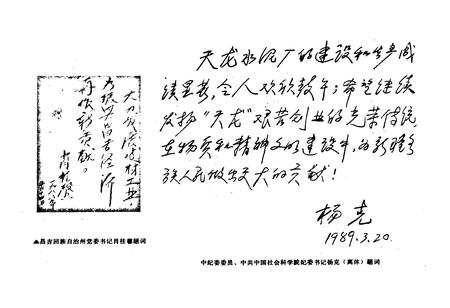 大力发展建材工业，
为振兴昌吉经济
再做新贡献。
▲昌吉回族自治州党委书记肖桂馨题词
天龙水泥厂的建设和生产成
绩显著，令人欢欣鼓午；希望继续
发扬“天龙”艰苦创业的光荣传统
在物质和精神文明建设中，为新疆各
族人民做出更大的贡献！
杨克
1989.3.20.
中纪委委员、中共中国社会科学院纪委书记杨克（离休）题词